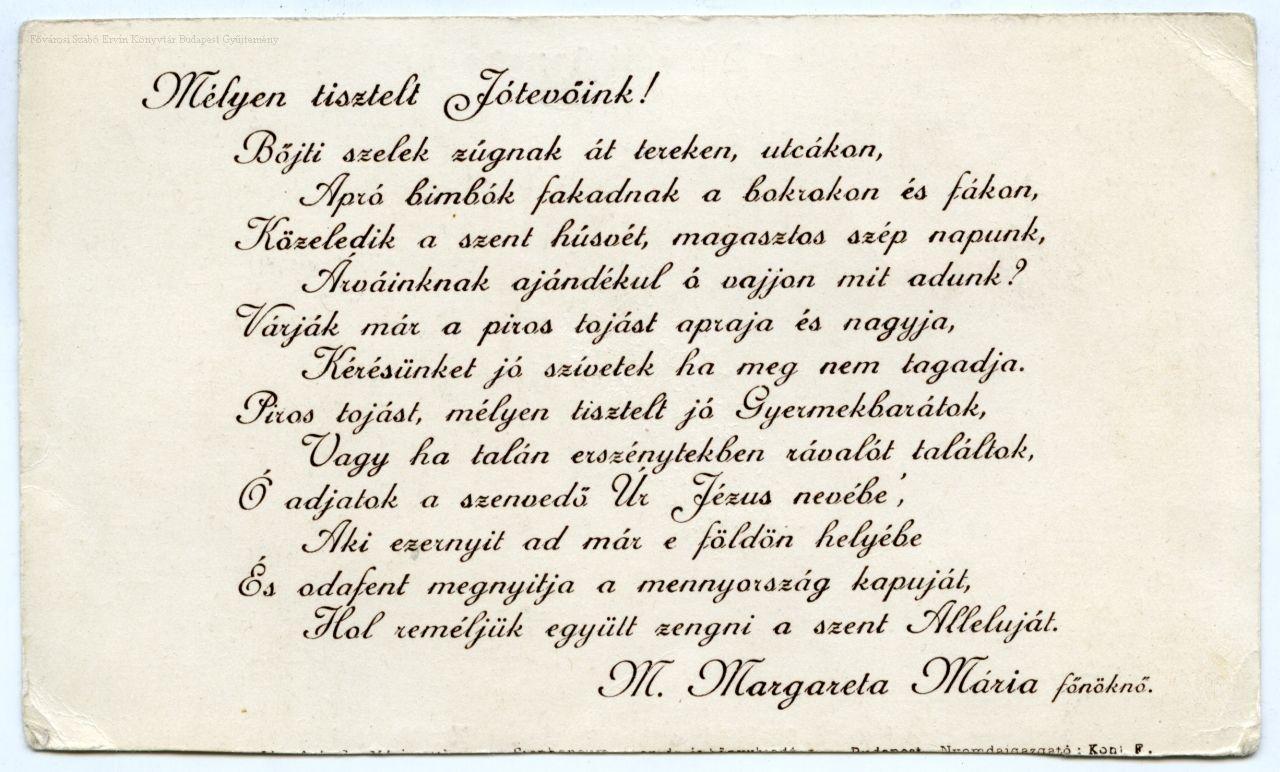 Fővárosi Szabó Ervin Könyvtár Budapest Gyűjtemény
Mélyen tisztelt Jótevőink!
Bőjti szelek zúgnak át tereken, utcákon,
Apró bimbók fakadnak a bokrokon és fákon,
Közeledik a szent húsvét, magasztos szép napunk,
Árváinknak ajándékul ó vajjon mit adunk?
Várják már a piros tojást apraja és nagyja,
Kérésünket jó szívetek ha meg nem tagadja.
Piros tojást, mélyen tisztelt jó Gyermekbarátok,
Vagy ha talán erszénytekben rávalót találtok,
Ó adjatok a szenvedő Úr Jézus nevébe',
Aki ezernyit ad már e földön helyébe
És odafent megnyitja a mennyország kapuját,
Hol reméljük együtt zengni a szent Alleluját.
M. Margareta Mária főnöknő.
Budapest. Nyomdaigazgató: Kohl F.